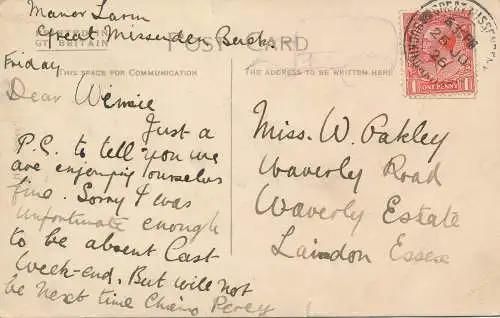 Manor Farm
Great Missenden Bucks.
GREAT BRITAIN
POST CARD
Friday
THIS SPACE FOR COMMUNICATION
THE ADDRESS TO BE WRITTEN HERE
Dear Winnie
Just a
P.C. to tell you we
are enjoying ourselves
fine. Sorry I was
unfortunate enough
to be absent last
week-end. But will not
be next time Cheerio Percy
Miss. W. Oakley
Waverly Road
Waverly Estate
Laindon Essex
GREAT MISSENDEN
26
1 ONE PENNY 1